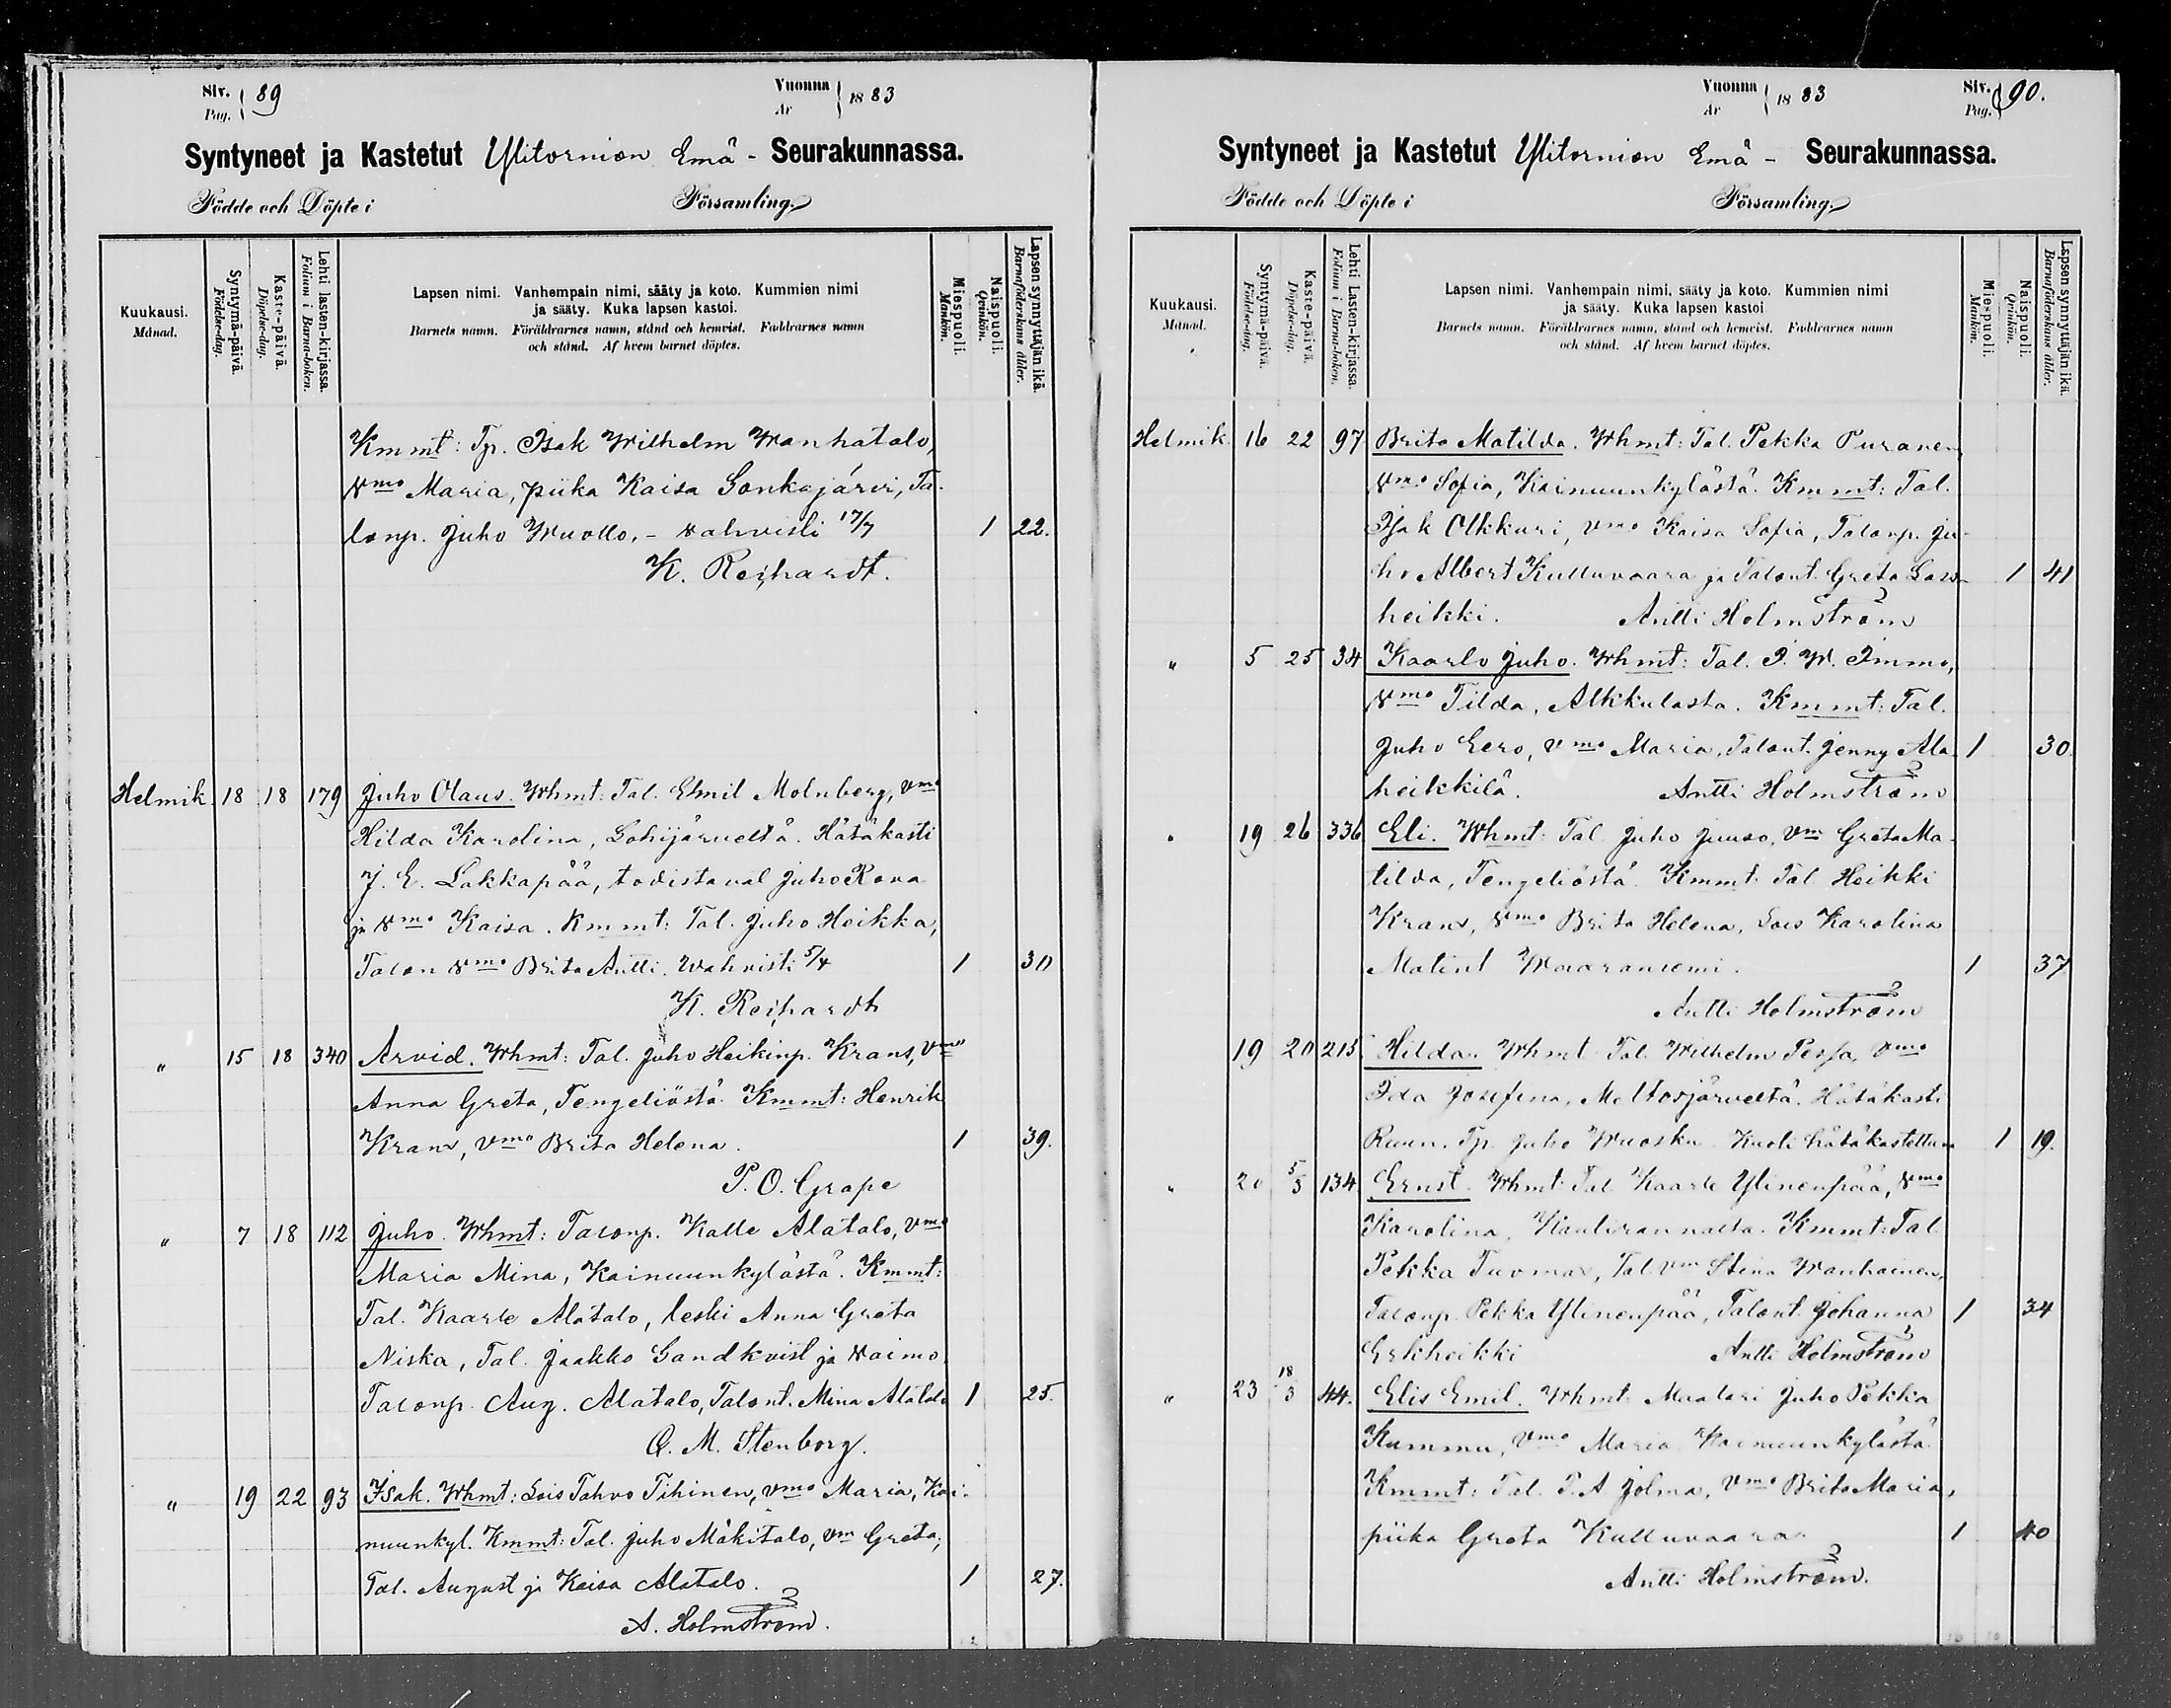 Siv. Pag. 89
Vuonna År 1883
Syntyneet ja Kastetut Ylitornion Emä- Seurakunnassa.
Födde och Döpte i Församling.
Kuukausi. Månad.
Syntymä-päivä. Födelse-dag.
Kaste-päivä. Döpelse-dag.
Lehti lasten-kirjassa. Folium i Barna-boken.
Lapsen nimi. Vanhempain nimi, sääty ja koto. Kummien nimi
ja sääty. Kuka lapsen kastoi.
Barnets namn. Föräldrarnes namn, stånd och hemvist. Faddrarnes namn
och stånd. Af hvem barnet döptes.
Miespuoli. Mankön.
Naispuoli. Qvinkön.
Lapsen synnyttäjän ikä. Barnaföderskans ålder.
Kmmt: Tp. Isak Wilhelm Wanhatalo,
vmo Maria, piika Kaisa Sonkajärvi, Ta-
lonp. Juho Wuollo. - vahvisti 17/7 1 22.
K. Reihardt.
Helmik. 18 18 179 Juho Olaus. Whmt: Tal. Emil Molnberg, vmo
Hilda Karolina, Lohijärveltä. Hätäkasti
J. E. Lakkapää, todistavat Juho Rova
ja vmo Kaisa. Kmmt: Tal. Juho Heikka,
Talon vmo Brita Antti. Wahvisti 5/4 1 30
K. Reihardt
" 15 18 340 Arvid. Whmt: Tal. Juho Heikinp. Krans, vmo
Anna Greta, Tengeliöstä. Kmmt: Henrik
Krans, vmo Brita Helena. 1 39.
P. O. Grape
" 7 18 112 Juho. Whmt: Talonp. Kalle Alatalo, vmo
Maria Mina, Kainuunkylästä. Kmmt:
Tal. Kaarle Alatalo, leski Anna Greta
Niska, Tal. Jaakko Sandkvist ja vaimo
Talonp. Aug. Alatalo, Talont. Mina Alatalo 1 25.
O. M. Stenborg.
" 19 22 93 Isak. Whmt: Lois Tahvo Tihinen, vmo Maria, Kai-
nuunkyl. Kmmt: Tal. Juho Mäkitalo, vm Greta,
Tal. August ja Kaisa Alatalo. 1 27.
A. Holmström.
Vuonna År 1883
Siv. Pag. 90.
Syntyneet ja Kastetut Ylitornion Emä- Seurakunnassa.
Födde och Döpte i Församling.
Kuukausi. Månad.
Syntymä-päivä. Födelse-dag.
Kaste-päivä. Döpelse-dag.
Lehti Lasten-kirjassa. Folium i Barna-boken.
Lapsen nimi. Vanhempain nimi, sääty ja koto. Kummien nimi
ja sääty. Kuka lapsen kastoi
Barnets namn. Föräldrarnes namn, stånd och hemvist. Faddrarnes namn
och stånd. Af hvem barnet döptes.
Miespuoli. Mankön.
Naispuoli. Qvinkön.
Lapsen synnyttäjän ikä. Barnaföderskans ålder.
Helmik. 16 22 97 Brita Matilda. Whmt: Tal. Pekka Puranen,
vmo Sofia, Kainuunkylästä. Kmmt: Tal.
Isak Olkkuri, vmo Kaisa Sofia, Talonp. Ju-
ho Albert Kulluvaara ja Talont. Greta Lass- 1 41
heikki. Antti Holmström
" 5 25 34 Kaarlo Juho. Whmt: Tal. I. W. Immo,
vmo Tilda, Alkkulasta. Kmmt: Tal.
Juho Eero, vmo Maria, Talont. Jenny Ala- 1 30.
heikkilä. Antti Holmström
" 19 26 336 Eli. Whmt: Tal Juho Juuso, vmo Greta Ma-
tilda, Tengeliöstä. Kmmt. Tal Heikki
Krans, vmo Brita Helena, Lois Karolina
Matint Waaraniemi. 1 37
Antti Holmström
19 20 215. Hilda. Whmt Tal. Wilhelm Pessa, vmo
Ida Josefina, Meltosjärveltä. Hätäkasti
Ruun. Tp. Juho Wuosku. Kuoli hätäkastettuna 1 19.
" 20 5/3 134 Ernst. Whmt: Tal Kaarle Ylinenpää, vmo
Karolina, Kaulirannalta. Kmmt: Tal
Pekka Tuomas, Tal. vm Stina Wanhainen,
Talonp. Pekka Ylinenpää, Talont. Johanna 1 34
Erkheikki Antti Holmström
" 23 18/3 44. Elis Emil. Whmt: Maalari Juho Pekka
Kummu, vmo Maria Kainuunkylästä.
Kmmt: Tal. P. A Jolma, vmo Brita Maria,
piika Greta Kulluvaara. 1 40
Antti Holmström.